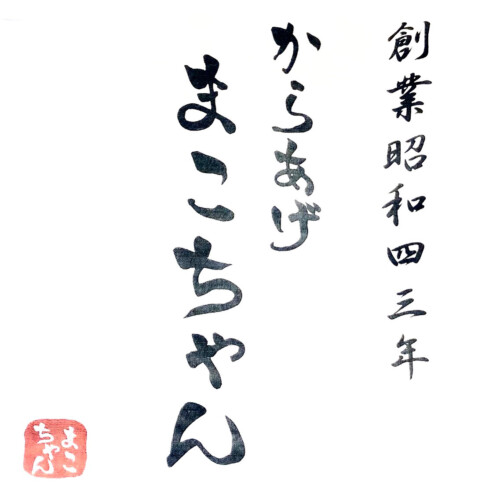 創業昭和四三年
からあげ
まこちゃん
まこ
ちゃん